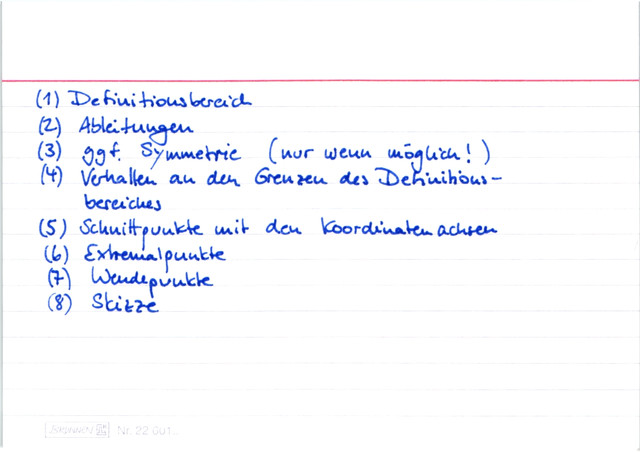 (1) Definitionsbereich
(2) Ableitungen
(3) ggf. Symmetrie (nur wenn möglich!)
(4) Verhalten an den Grenzen des Definitions-
bereiches
(5) Schnittpunkte mit den Koordinatenachsen
(6) Extremalpunkte
(7) Wendepunkte
(8) Skizze
Nr. 22 601